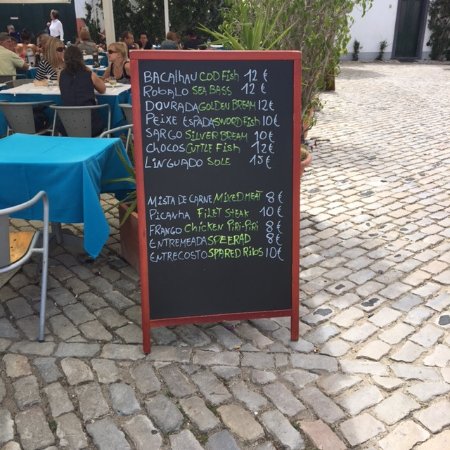 BACALHAU COD FISH 12 €
ROBALO SEA BASS 12 €
DOURADA GOLDEN BREAM 12€
PEIXE ESPADA SWORD FISH 10€
SARGO SILVER BREAM 10€
CHOCOS CUTTLE FISH 12€
LINGUADO SOLE 15€
MISTA DE CARNE MIXED MEAT 8€
PICANHA FILET STEAK 10€
FRANGO CHICKEN PIRI-PIRI 8€
ENTREMEADA 8€
ENTRECOSTO SPARED RIBS 10€